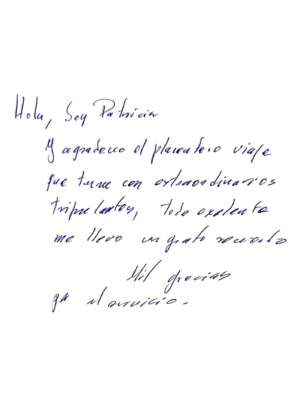 Hola, Soy Patricia
y agradezco el placentero viaje
que tuve con extraordinarios
tripulantes, todo excelente
me llevo un grato recuerdo
Mil gracias
el servicio.